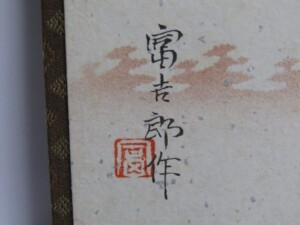 富吉郎作